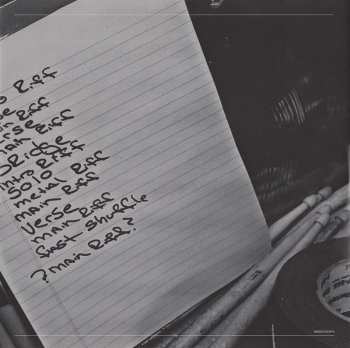 Riff
Riff
verse
main Riff
Bridge
intro Riff
Solo
metal Riff
main Riff
verse
main Riff
fast shuffle
?main Riff?